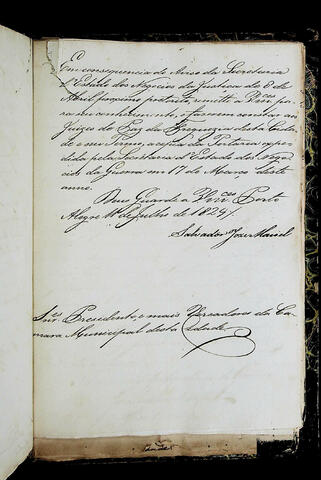 Em consequencia do Aviso da Secretaria
d'Estado dos Negocios da Justiça de 8 de
Abril proximo preterito, remetto a Vm.ces pa
ra seu conhecimento, e fazerem constar aos
Juizes de Paz da Freguezia desta Cidade
e seu Termo, a copia da Portaria expe
dida pela Secretaria d'Estado dos Nego
cios da Guerra em 17 de Março deste
anno.
Deos Guarde a Vm.ces Porto
Alegre de Julho de 1829.
Salvador Joze Maciel
Snr.es Presidente e mais Vereadores da Ca-
mara Municipal desta Cidade